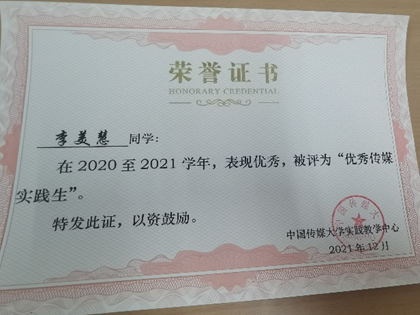 荣誉证书
HONORARY CREDENTIAL
李美慧 同学:
在 2020 至 2021 学年，表现优秀，被评为“优秀传媒
实践生”。
特发此证，以资鼓励。
中国传媒大学实践教学中心
2021年12月